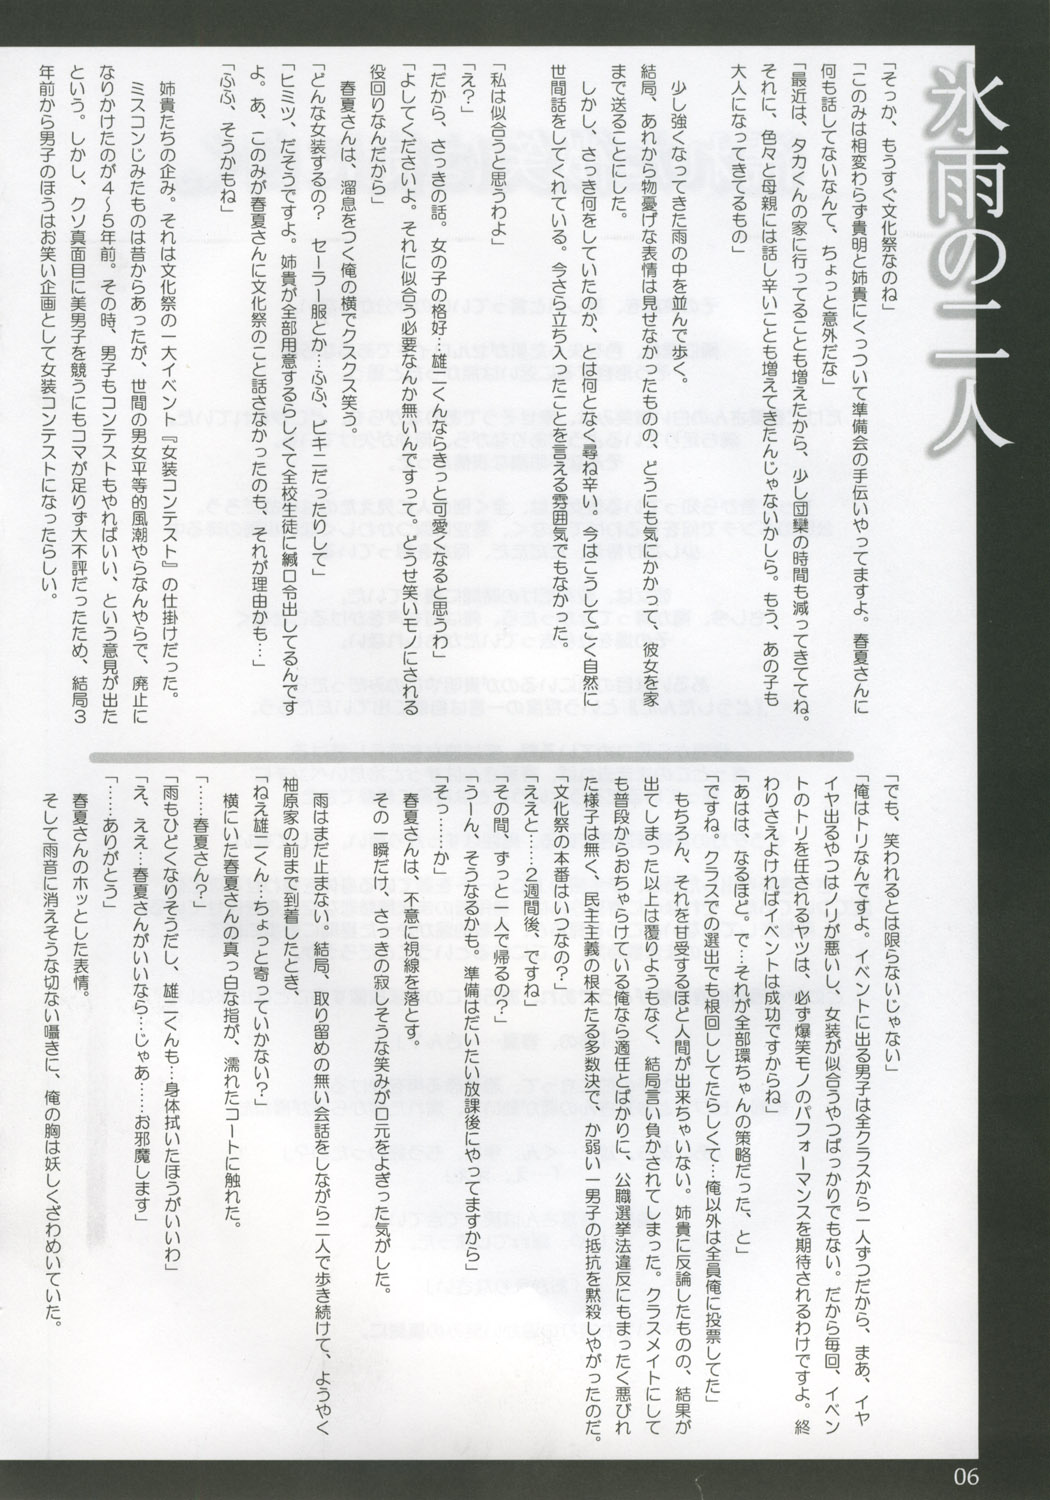 氷雨の二人
「そっか、もうすぐ文化祭なのね」
「このみは相変わらず貴明と姉貴にくっついて準備会の手伝いやってますよ。春夏さんに
何も話してないなんて、ちょっと意外だな」
「最近は、タカくんの家に行ってることも増えてたから、少し団欒の時間も減ってきててね。
それに、色々と母親には話し辛いことも増えてきたんじゃないかしら。もう、あの子も
大人になってきてるもの」
少し強くなってきた雨の中を並んで歩く。
結局、あれから物憂げな表情は見せなかったものの、どうにも気にかかって、彼女を家
まで送ることにした。
しかし、さっき何をしていたのか、とは何となく尋ね辛い。今はこうしてごく自然に
世間話をしてくれている。今さら立ち入ったことを言える雰囲気でもなかった。
「私は似合うと思うわよ」
「え？」
「だから、さっきの話。女の子の格好…雄二くんならきっと可愛くなると思うわ」
「よしてくださいよ。それに似合う必要なんか無いんですって。どうせ笑いモノにされる
役回りなんだから」
春夏さんは、溜息をつく俺の横でクスクス笑う。
「どんな女装するの？　セーラー服とか…ふふ、ビキニだったりして」
「ヒミツ、だそうですよ。姉貴が全部用意するらしくて全校生徒に緘口令出してるんです
よ。あ、このみが春夏さんに文化祭のこと話さなかったのも、それが理由かも…」
「ふふ、そうかもね」
姉貴たちの企み。それは文化祭の一大イベント『女装コンテスト』の仕掛けだった。
ミスコンじみたものは昔からあったが、世間の男女平等的風潮やらなんやらで、廃止に
なりかけたのが４～５年前。その時、男子もコンテストもやればいい、という意見が出た
という。しかし、クソ真面目に美男子を競うにもコマが足りず大不評だったため、結局３
年前から男子のほうはお笑い企画として女装コンテストになったらしい。
「でも、笑われるとは限らないじゃない」
「俺はトリなんですよ。イベントに出る男子は全クラスから一人ずつだから、まあ、イヤ
イヤ出るやつはノリが悪いし、女装が似合うやつばっかりでもない。だから毎回、イベン
トのトリを任されるヤツは、必ず爆笑モノのパフォーマンスを期待されるわけですよ。終
わりさえよければイベントは成功ですからね」
「あはは、なるほど。で…それが全部環ちゃんの策略だった、と」
「ですね。クラでの選出でも根回ししてたらしくて…俺以外は全員俺に投票してた」
もちろん、それを甘受するほど人間が出来ちゃいない。姉貴に反論したものの、結果が
出てしまった以上は覆りようもなく、結局言い負かされてしまった。クラスメイトにして
も普段からおちゃらけている俺なら適任とばかりに、公職選挙法違反にもまったく悪びれ
た様子は無く、民主主義の根本たる多数決で、か弱い一男子の抵抗を黙殺しやがったのだ。
「文化祭の本番はいつなの？」
「ええと……2週間後、ですね」
「その間、ずっと一人で帰るの？」
「うーん、そうなるかも。準備はだいたい放課後にやってますから」
「そっ……か」
春夏さんは、不意に視線を落とす。
その一瞬だけ、さっきの寂しそうな笑みが口元をよぎった気がした。
雨はまだ止まない。結局、取り留めの無い会話をしながら二人で歩き続けて、ようやく
柚原家の前まで到着したとき、
「ねえ雄二くん…ちょっと寄っていかない？」
横にいた春夏さんの真っ白な指が、濡れたコートに触れた。
「……春夏さん？」
「雨もひどくなりそうだし、雄二くんも…身体拭いたほうがいいわ」
「え、ええ…春夏さんがいいなら…じゃあ……お邪魔します」
「……ありがとう」
春夏さんのホッとした表情。
そして雨音に消えそうな切ない囁きに、俺の胸は妖しくざわめいていた。
06